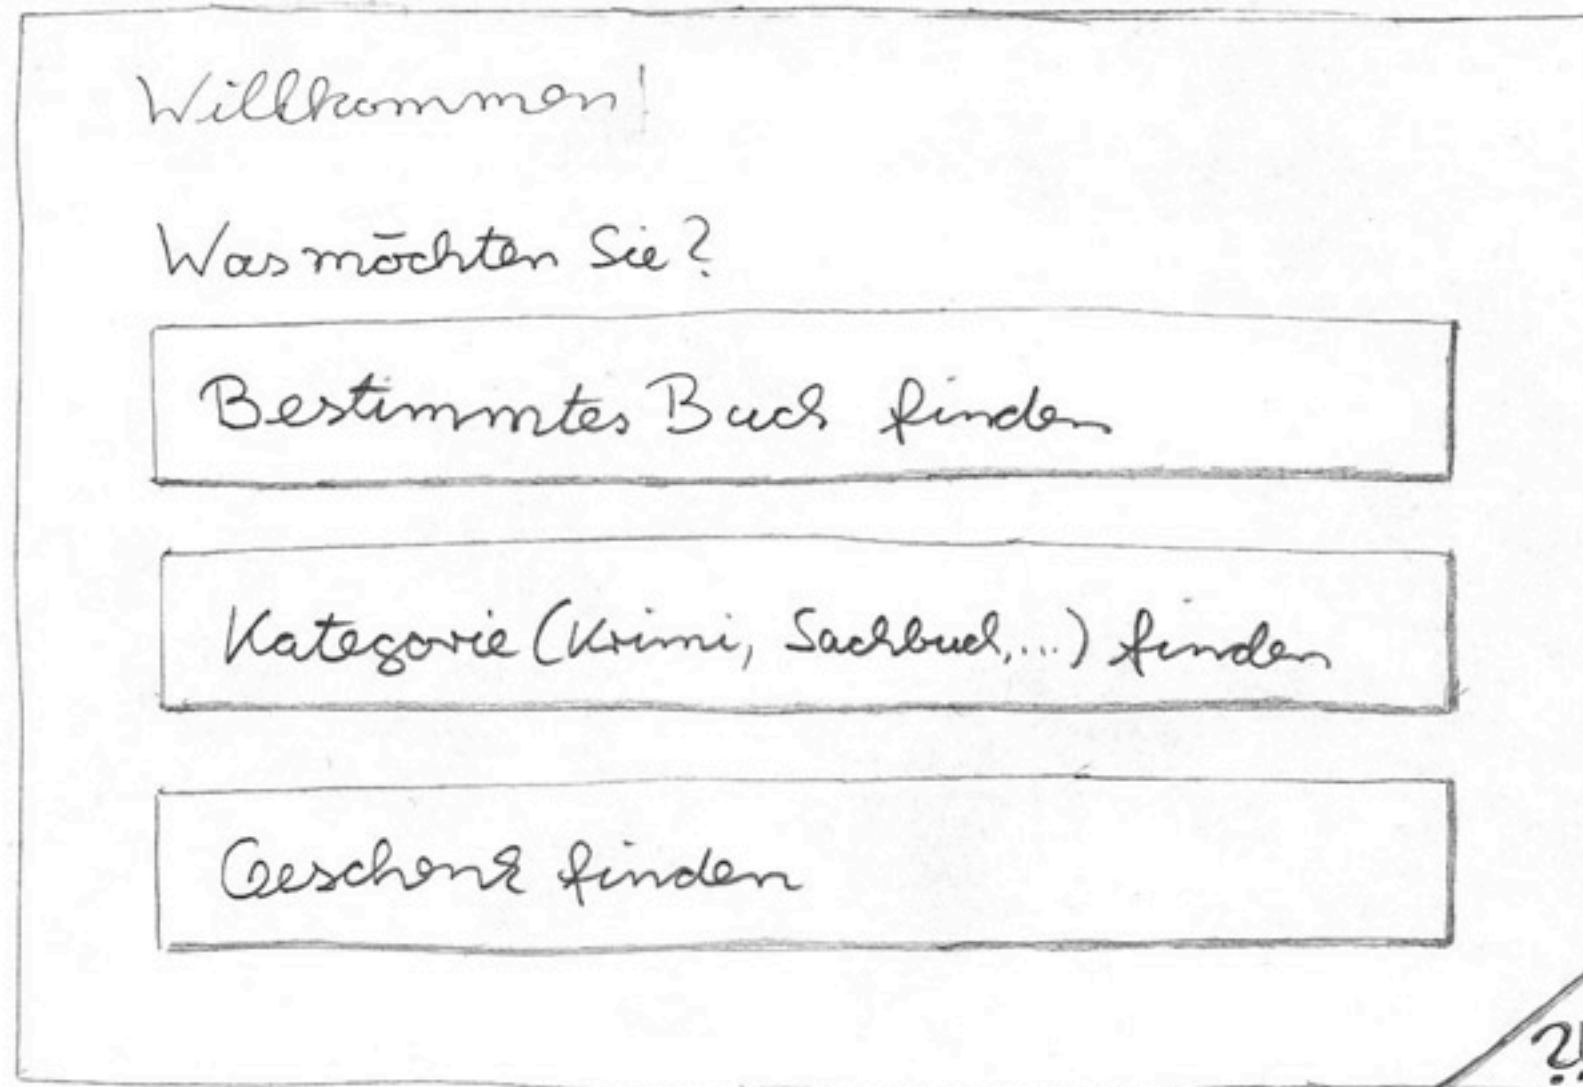 Willkommen!
Was möchten Sie?
Bestimmtes Buch finden
Kategorie (Krimi, Sachbuch,...) finden
Geschenk finden
?!